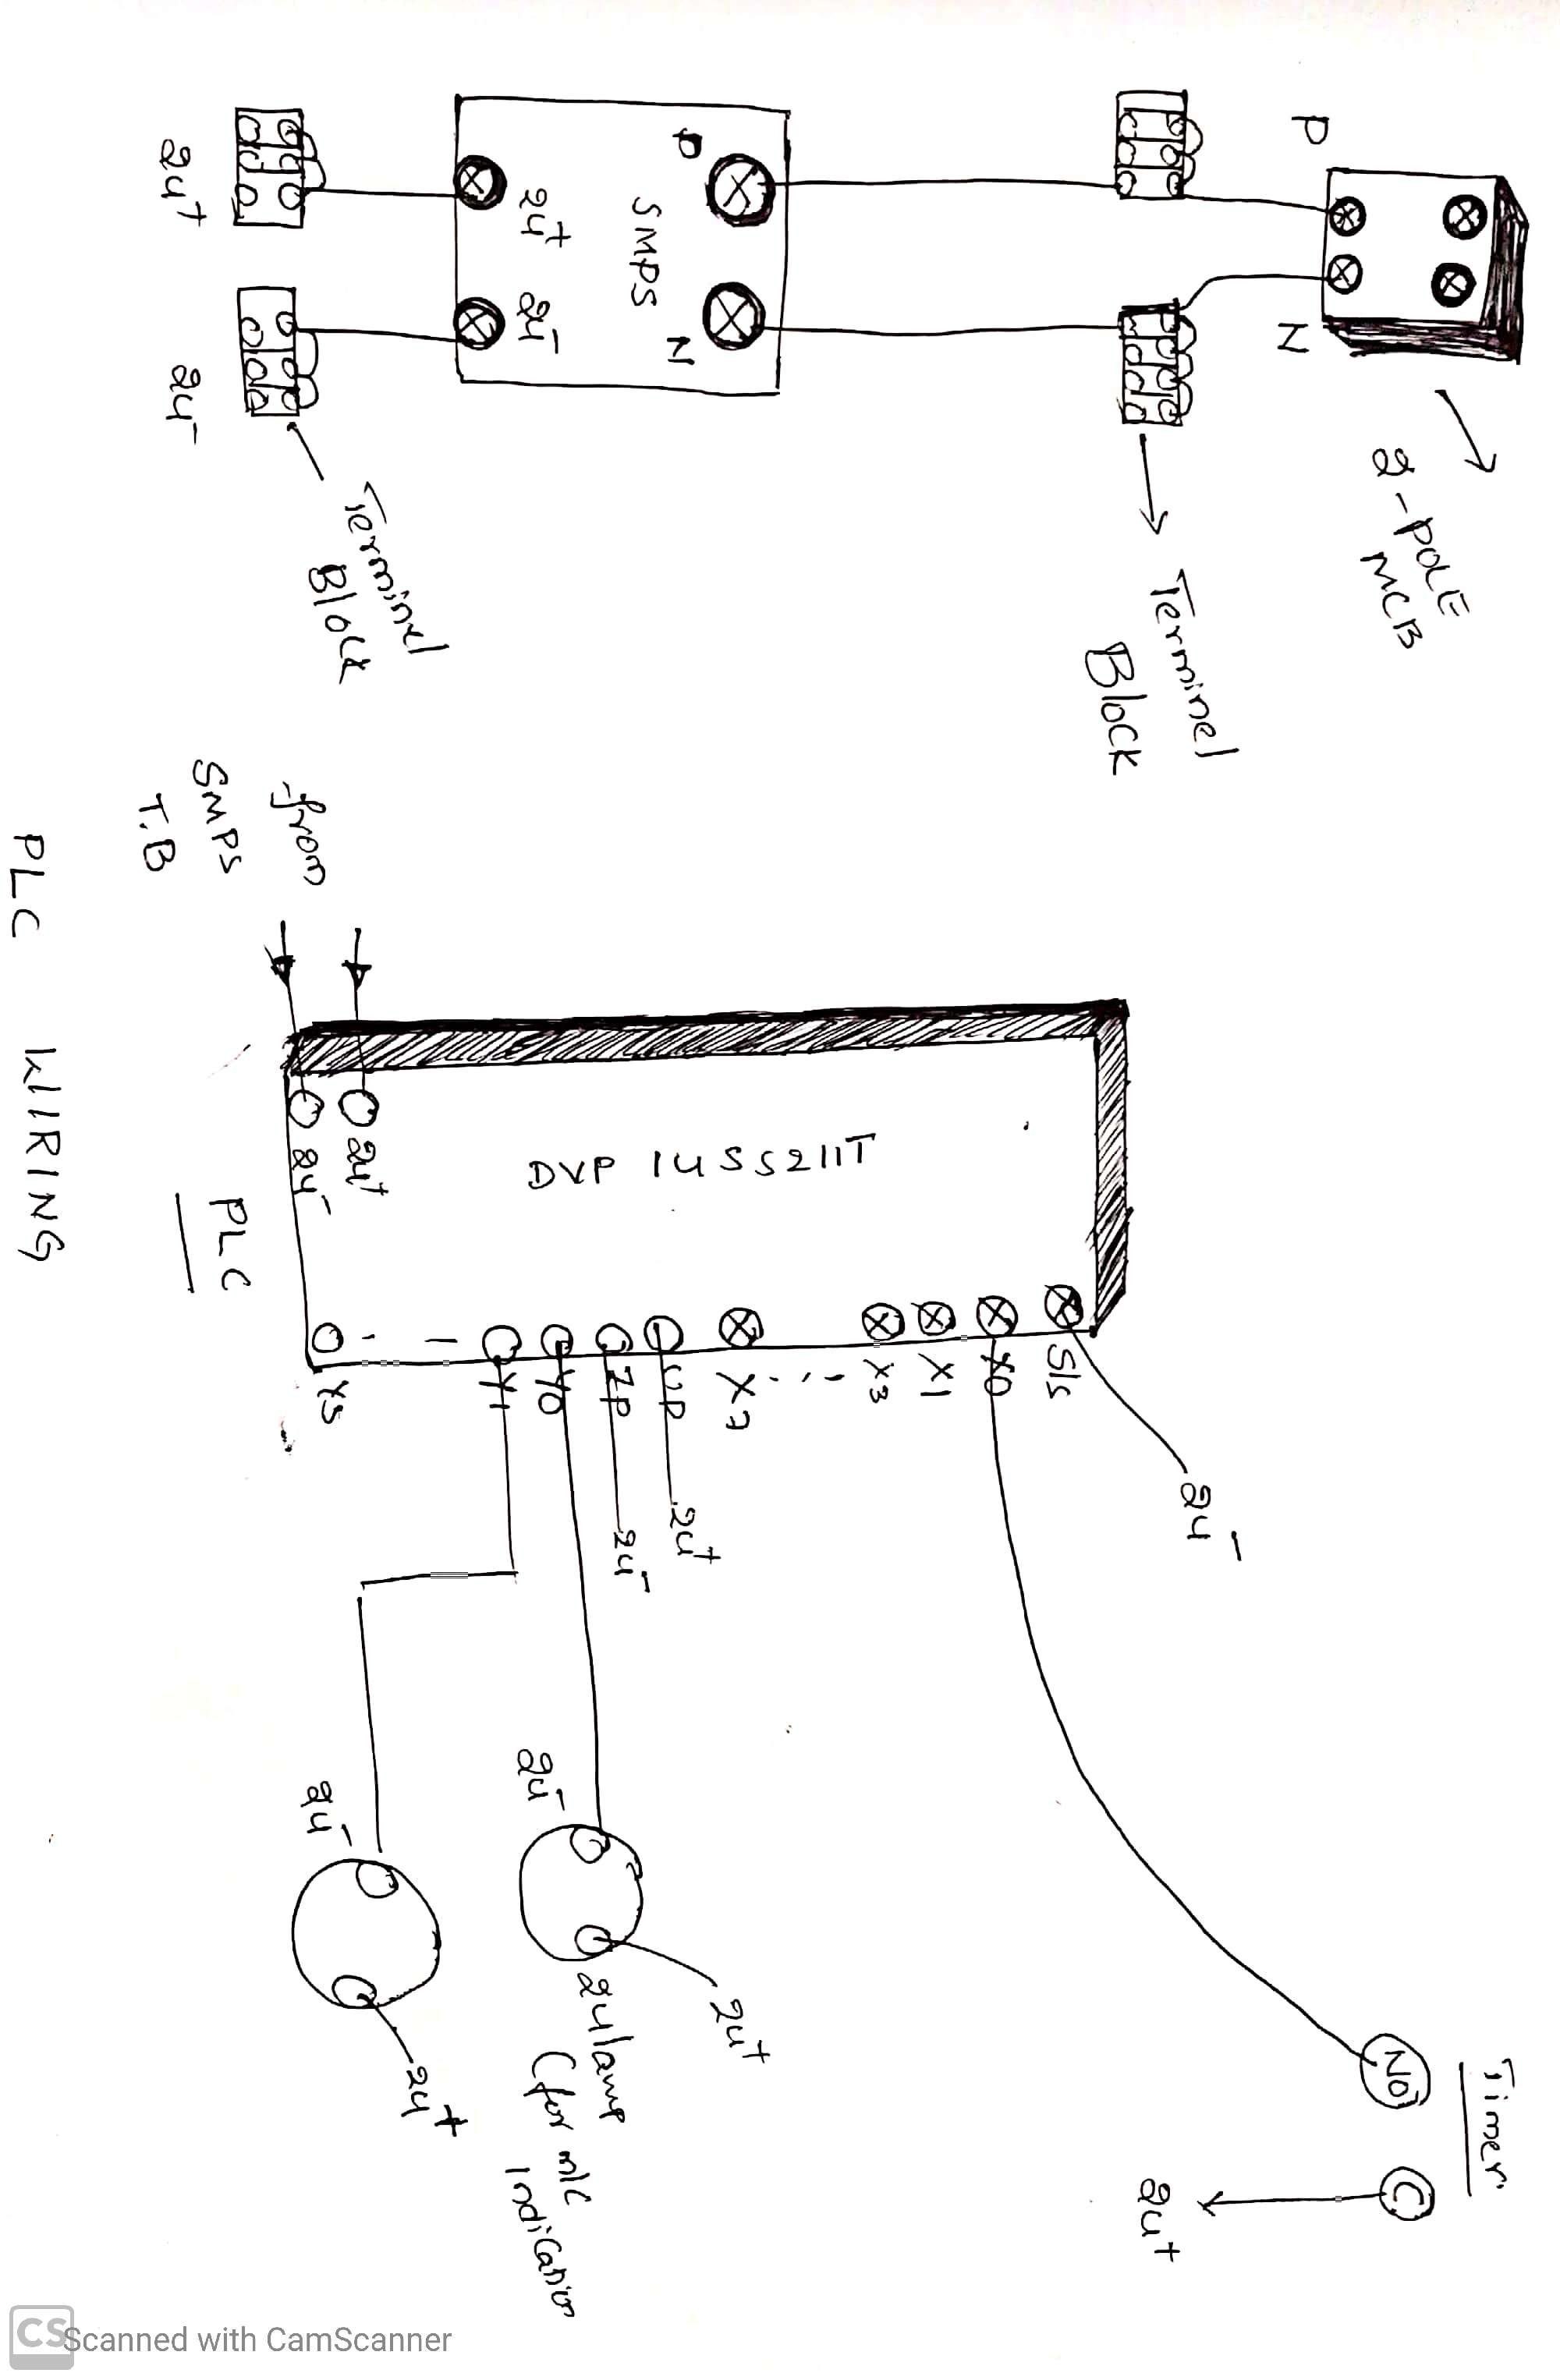 P
N
2-POLE
MCB
Terminel
Block
P
N
SMPS
24+
24-
24+
24-
Terminel
Block
from
SMPS
T.B
24+
24-
DVP 14SS211T
PLC
S/S
X0
X1
X3
X7
UP
ZP
Y0
Y1
Y5
24-
24+
24-
Timer
NO
C
24+
24-
24+
24 lamp
(for m/c
Indication
24-
24+
PLC WIRING
CS
Scanned with CamScanner